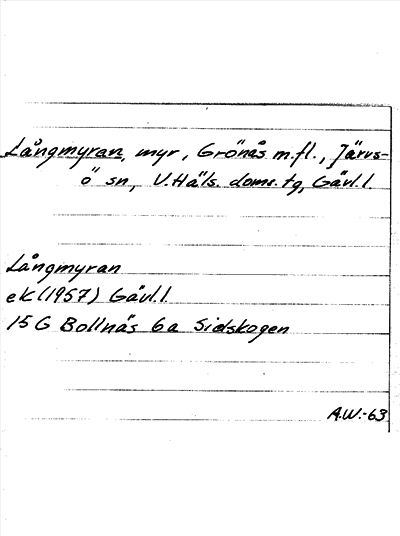 Långmyran, myr, Grönås m.fl., Järvs-
ö sn, V.Häls. doms. tg, Gävl.l
Långmyran
ek (1957) Gävl.l.
15 G Bollnäs 6a Sidskogen
A.W.-63